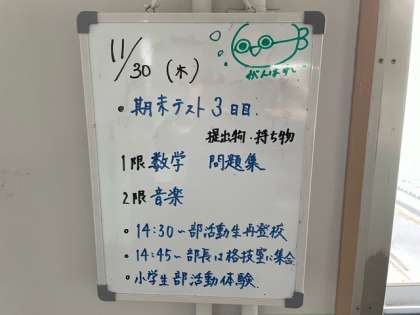 11/30 (木)
がんばるぞ
・期末テスト3日目.
提出物・持ち物
1限 数学 問題集
2限 音楽
・14:30〜部活動生再登校
・14:45〜部長は格技室に集合
・小学生部活動体験.